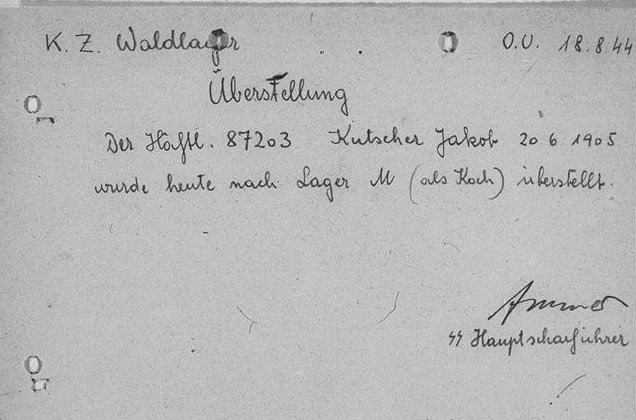 K. Z. Waldlager O.U. 18.8.44
Überstellung
Der Häftl. 87203 Kutscher Jakob 20 6 1905
wurde heute nach Lager M (als Koch) überstellt.
SS Hauptscharführer